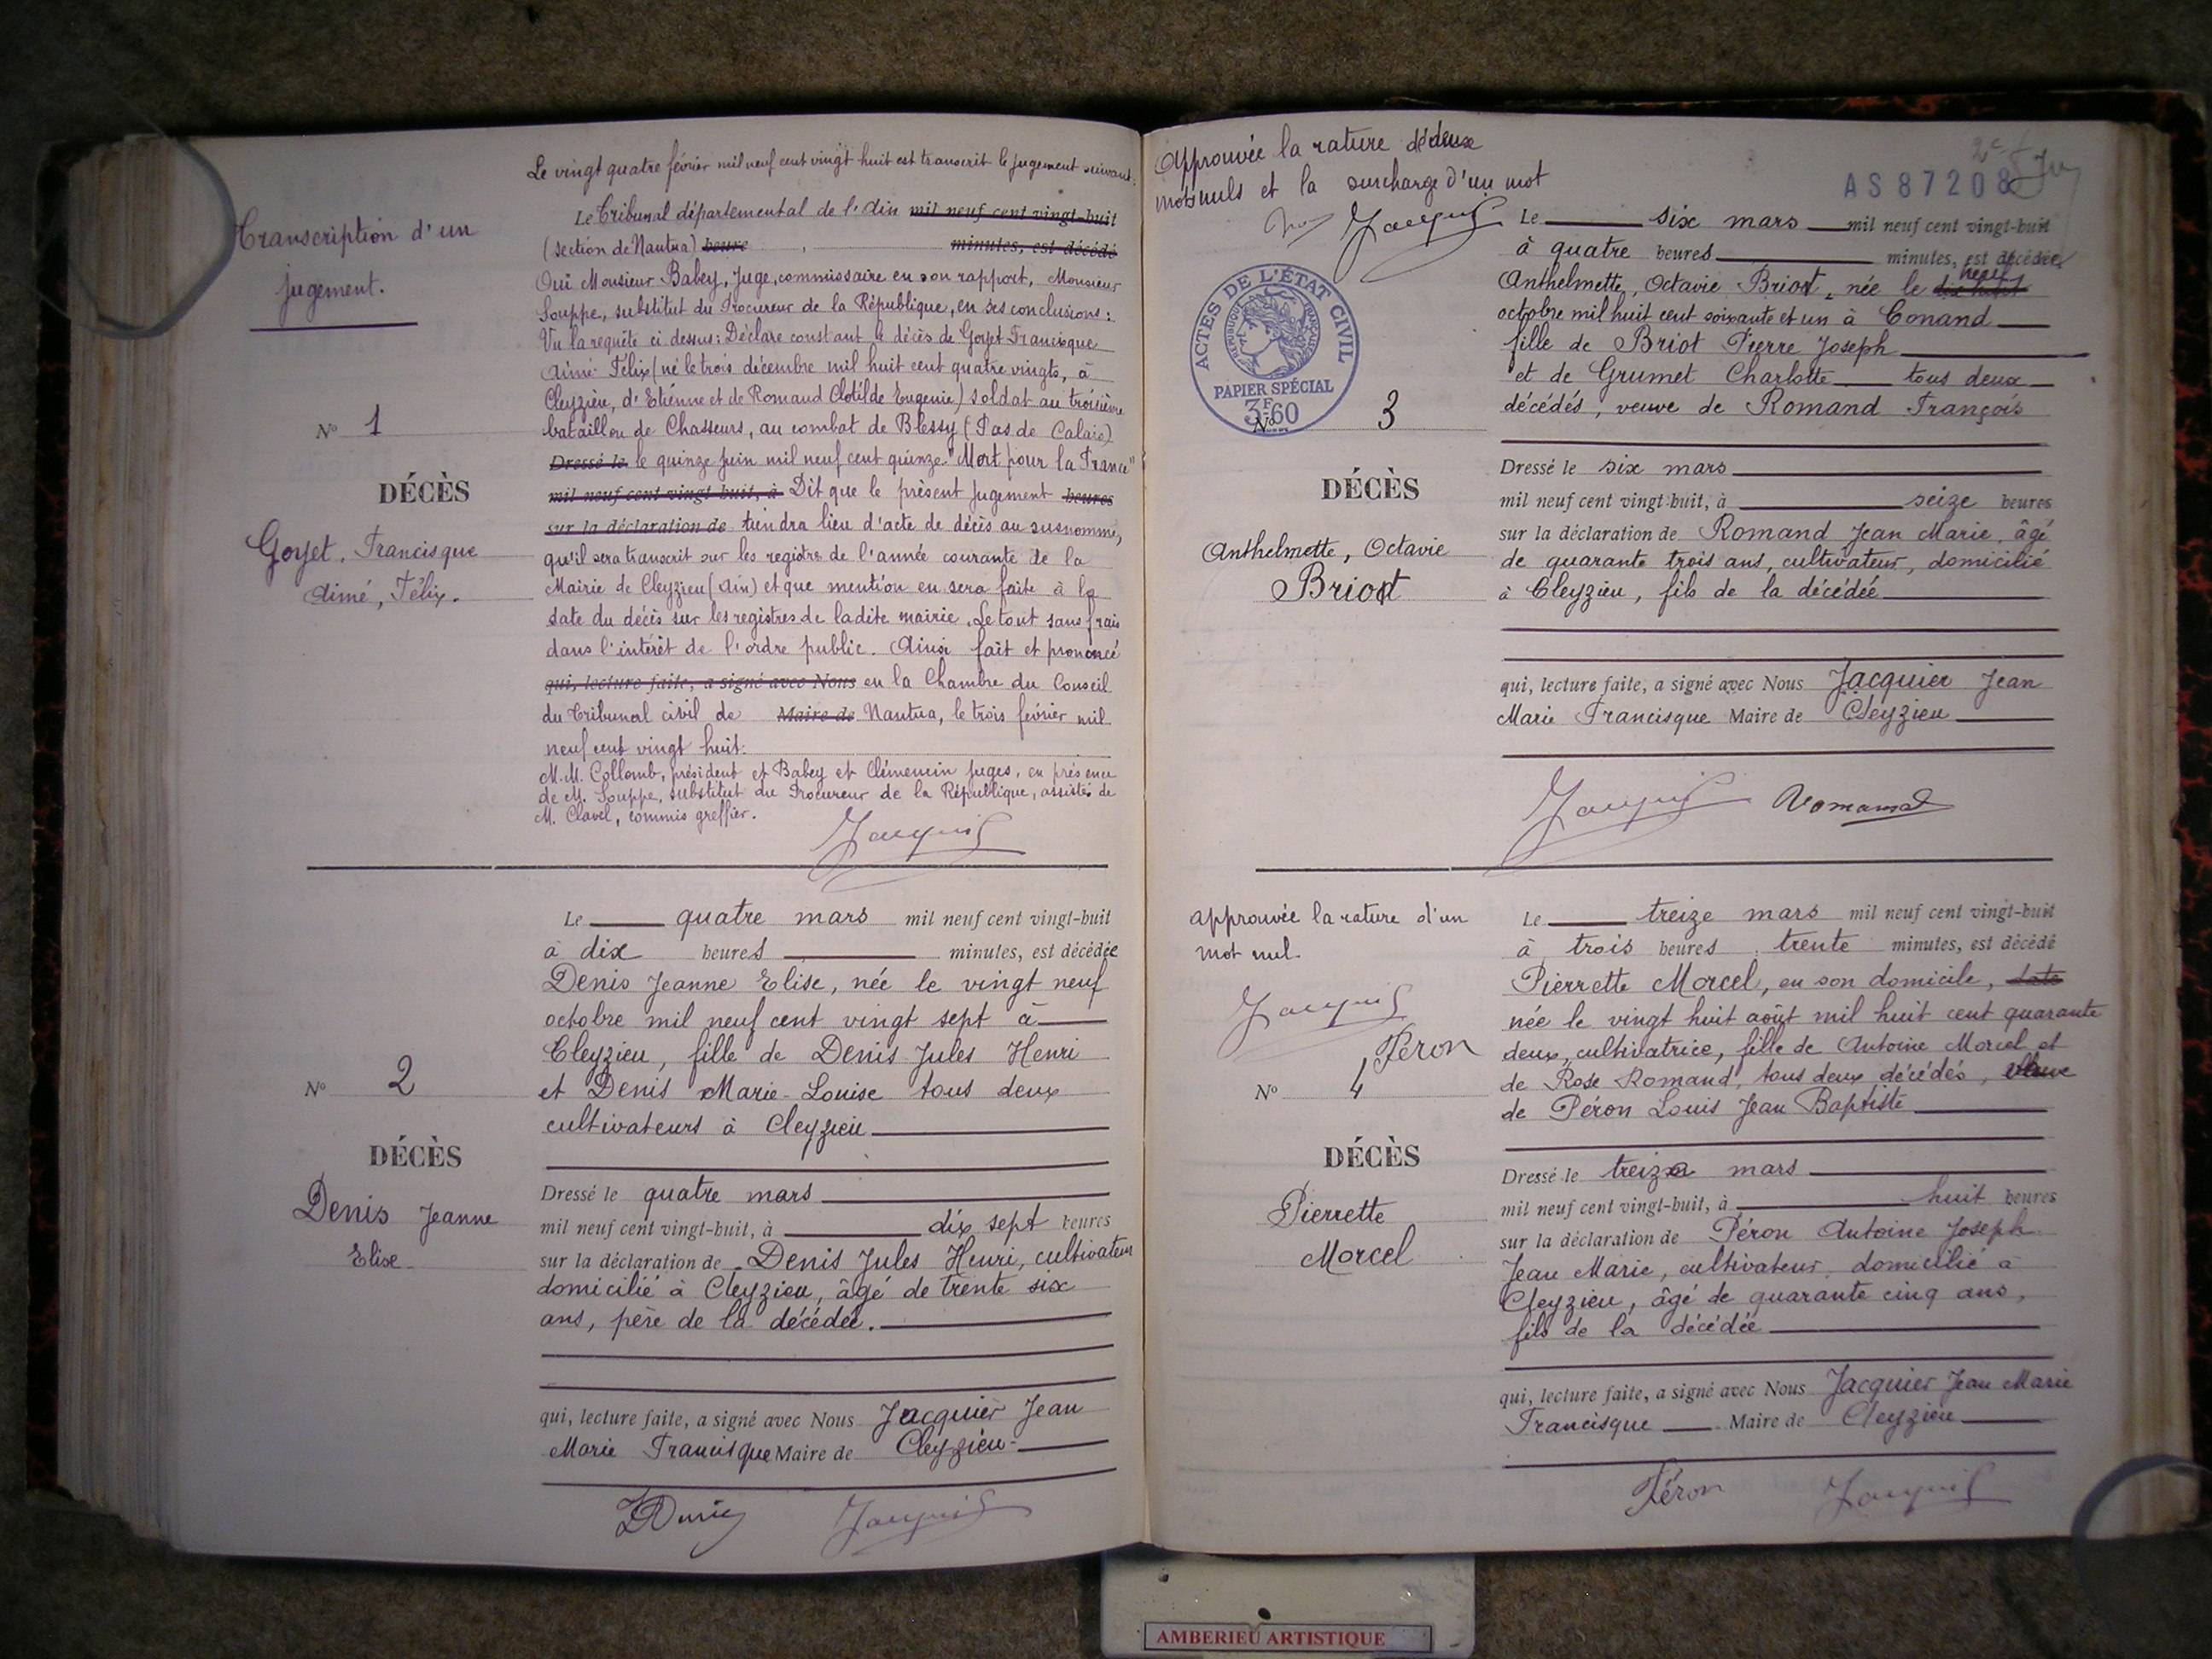 Le vingt quatre février mil neuf cent vingt huit est transcrit le jugement suivant:
Transcription d'un
jugement.
Nº 1
DÉCÈS
Goyet, Francisque
Aimé, Félix.
Le Tribunal départemental de l'Ain mil neuf cent vingt-huit
(section de Nantua) heure , minutes, est décédé
Oui Monsieur Babey, Juge, commissaire en son rapport, Monsieur
Souppe, substitut du Procureur de la République, en ses conclusions:
Vu la requête ci dessus: Déclare constant le décès de Goyet Francisque
Aimé Félix (né le trois décembre mil huit cent quatre vingts, à
Cleyzieu, d'Etienne et de Romand Clotilde Eugenie) soldat au troisième
bataillon de Chasseurs, au combat de Blessy (Pas de Calais)
Dressé le le quinze Juin mil neuf cent quinze. "Mort pour la France"
mil neuf cent vingt-huit, à Dit que le présent Jugement heures
sur la déclaration de tiendra lieu d'acte de décès au susnommé,
qu'il sera transcrit sur les registres de l'année courante de la
Mairie de Cleyzieu (Ain) et que mention en sera faite à la
date du décès sur les registres de ladite mairie. Le tout sans frais
dans l'intérêt de l'ordre public. Ainsi fait et prononcé
qui, lecture faite, a signé avec Nous en la Chambre du Conseil
du Tribunal civil de Maire de Nantua, le trois février mil
neuf cent vingt huit.
M.M. Collomb, président et Babey et Clémencin juges, en présence
de M. Souppe, substitut du Procureur de la République, assistés de
M. Clavel, commis greffier.
Jacquier
Nº 2
DÉCÈS
Denis Jeanne
Elise
Le quatre mars mil neuf cent vingt-huit
à dix heures minutes, est décédée
Denis Jeanne Elise, née le vingt neuf
octobre mil neuf cent vingt sept à
Cleyzieu, fille de Denis Jules Henri
et Denis Marie-Louise tous deux
cultivateurs à Cleyzieu
Dressé le quatre mars
mil neuf cent vingt-huit, à dix sept heures
sur la déclaration de Denis Jules Henri, cultivateur
domicilié à Cleyzieu, âgé de trente six
ans, père de la décédée.
qui, lecture faite, a signé avec Nous Jacquier Jean
Marie Francisque Maire de Cleyzieu
Jacquier
Approuvée la rature de deux
mots nuls et la surcharge d'un mot
Jacquier
AS 87208
ACTES DE L'ÉTAT CIVIL
RÉPUBLIQUE FRANÇAISE
PAPIER SPÉCIAL
3F60
Nº 3
DÉCÈS
Anthelmette, Octavie
Briot
Le six mars mil neuf cent vingt-huit
à quatre heures minutes, est décédée
Anthelmette, Octavie Briot, née le dix huit neuf
octobre mil huit cent soixante et un à Conand
fille de Briot Pierre Joseph
et de Grumet Charlotte tous deux
décédés, veuve de Romand François
Dressé le six mars
mil neuf cent vingt-huit, à seize heures
sur la déclaration de Romand Jean Marie, âgé
de quarante trois ans, cultivateur, domicilié
à Cleyzieu, fils de la décédée
qui, lecture faite, a signé avec Nous Jacquier Jean
Marie Francisque Maire de Cleyzieu
Jacquier Romand
approuvée la rature d'un
mot nul.
Jacquier
Péron
Nº 4
DÉCÈS
Pierrette
Morcel
Le treize mars mil neuf cent vingt-huit
à trois heures trente minutes, est décédé
Pierrette Morcel, en son domicile,
née le vingt huit août mil huit cent quarante
deux, cultivatrice, fille de Antoine Morcel et
de Rose Romand, tous deux décédés, veuve
de Péron Louis Jean Baptiste
Dressé le treize mars
mil neuf cent vingt-huit, à huit heures
sur la déclaration de Péron Antoine Joseph
Jean Marie, cultivateur, domicilié à
Cleyzieu, âgé de quarante cinq ans,
fils de la décédée
qui, lecture faite, a signé avec Nous Jacquier Jean Marie
Francisque Maire de Cleyzieu
Péron Jacquier
AMBERIEU ARTISTIQUE